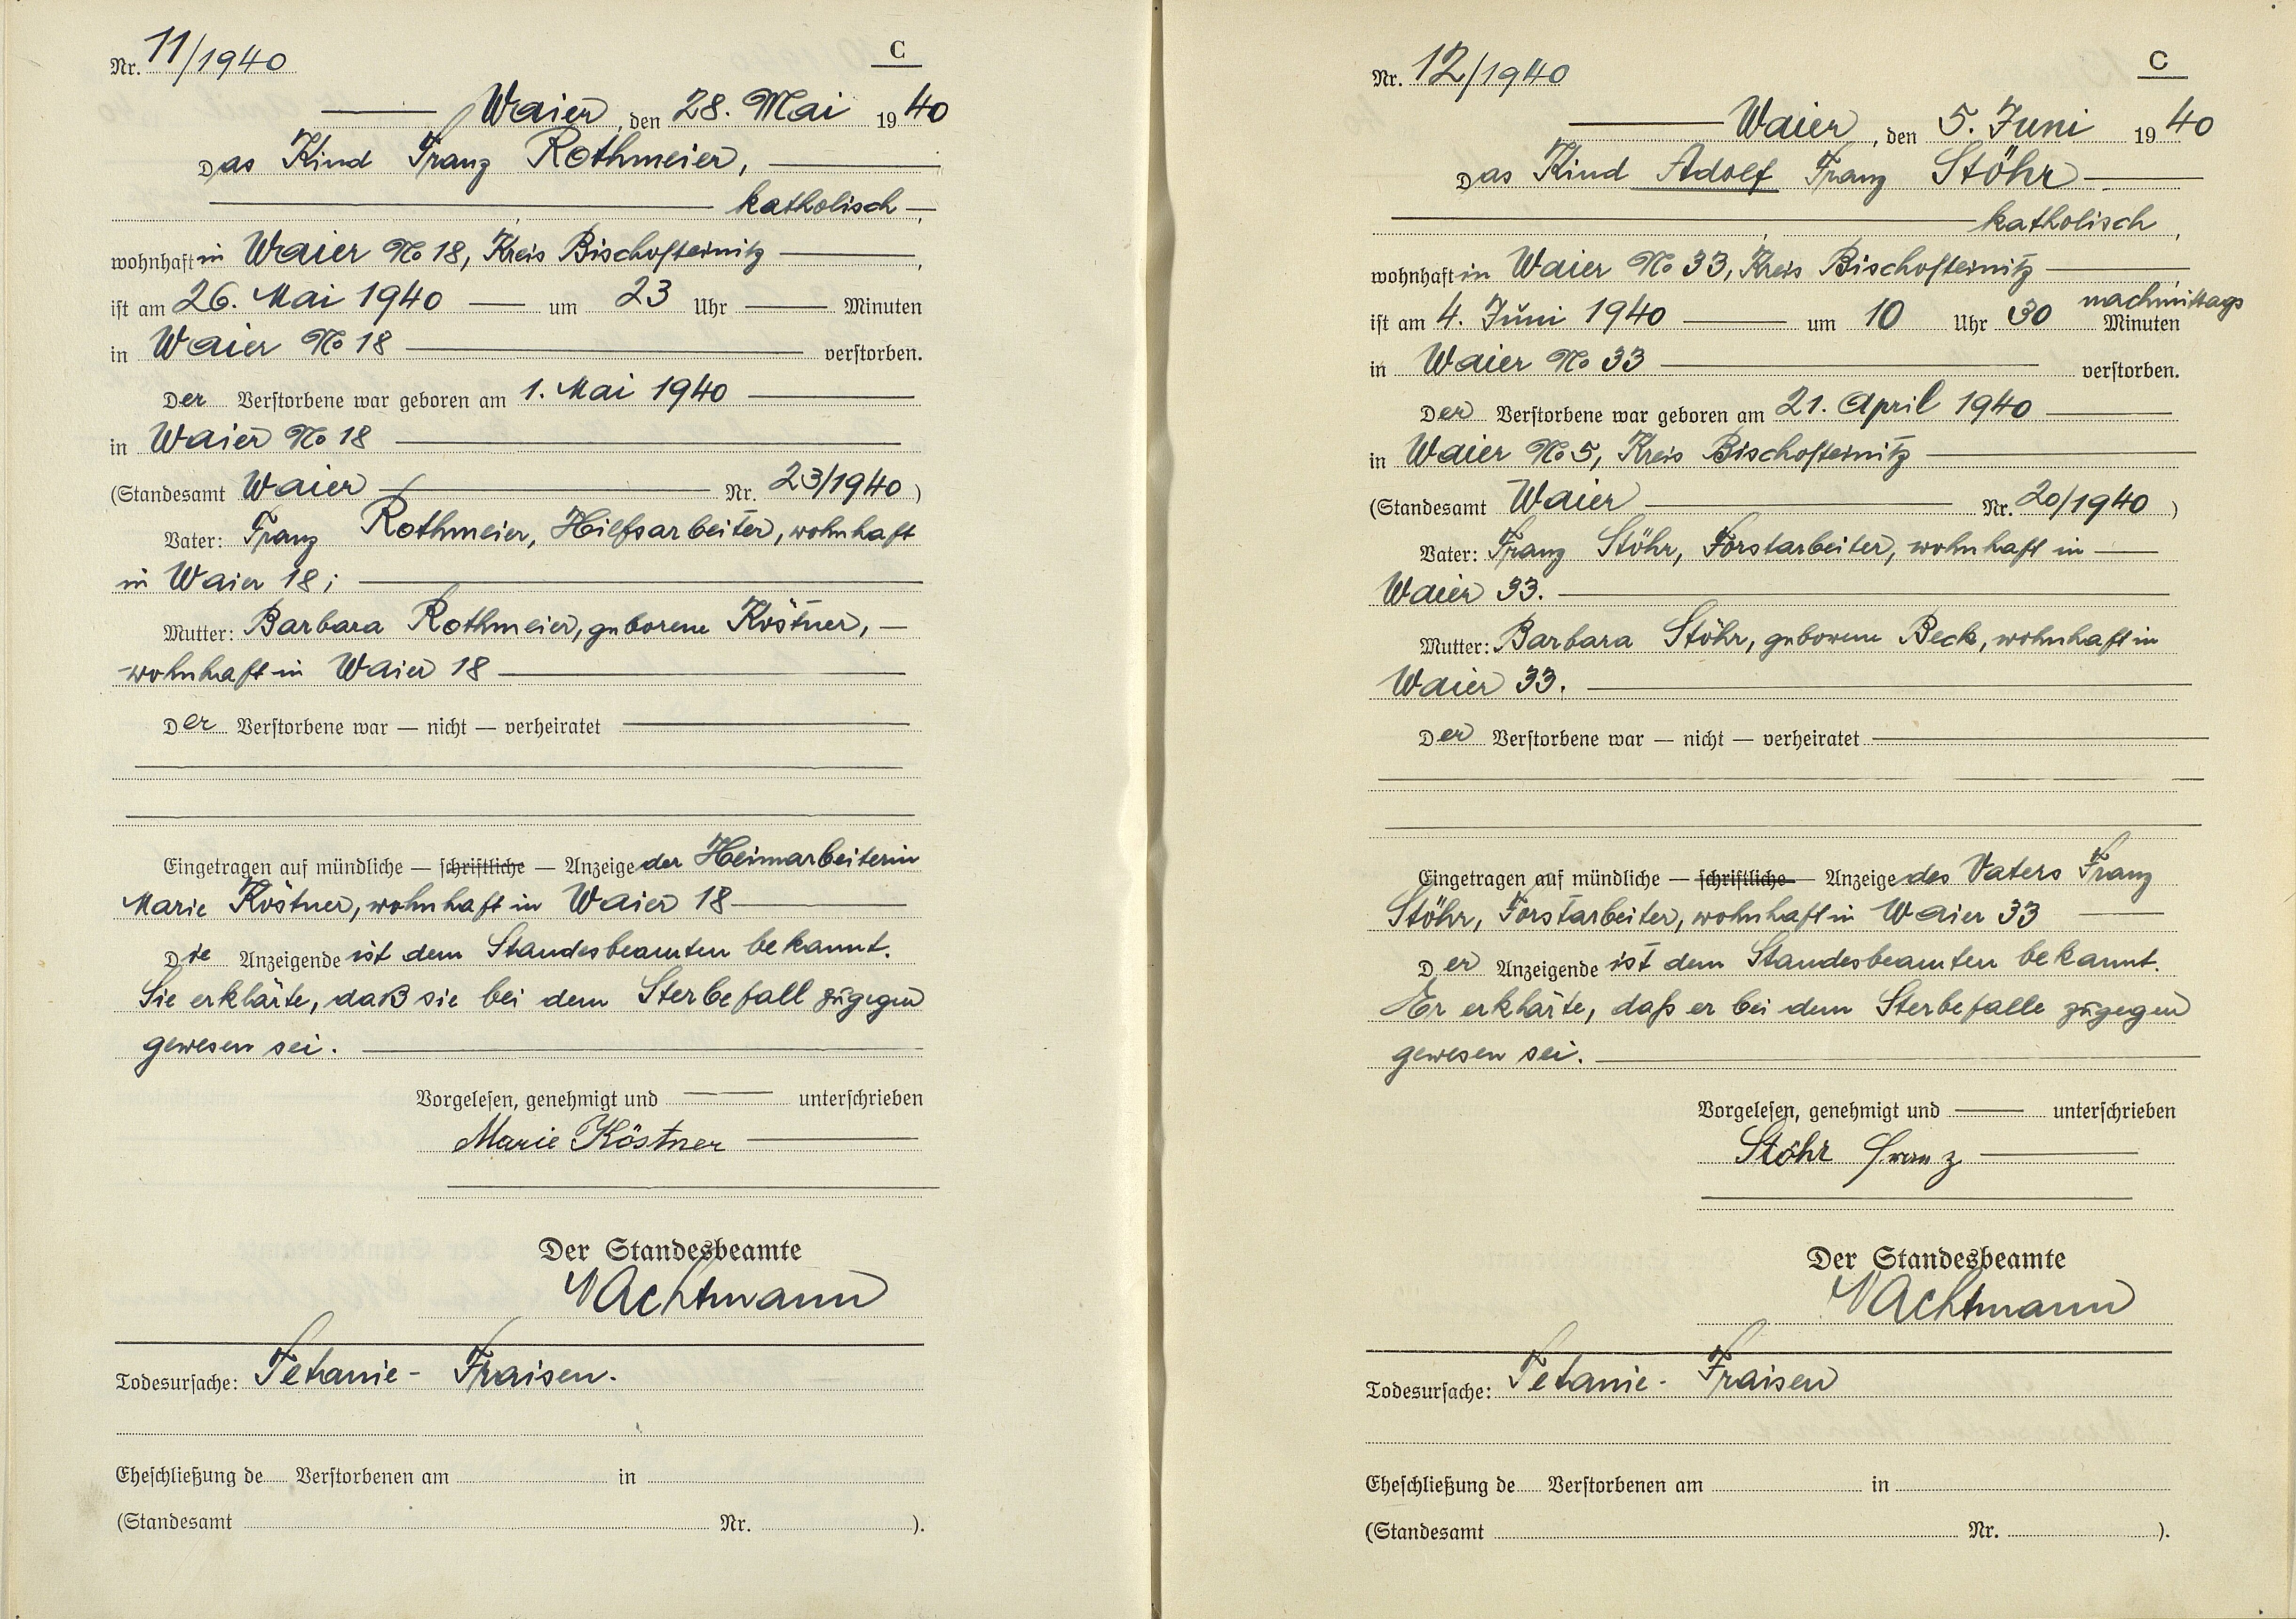 Nr. 11/1940
C
Waier, den 28. Mai 1940
Das Kind Franz Rothmeier,
katholisch,
wohnhaft in Waier No 18, Kreis Bischofteinitz,
ist am 26. Mai 1940 um 23 Uhr Minuten
in Waier No 18 verstorben.
Der Verstorbene war geboren am 1. Mai 1940
in Waier No 18
(Standesamt Waier Nr. 23/1940)
Vater: Franz Rothmeier, Hilfsarbeiter, wohnhaft
in Waier 18;
Mutter: Barbara Rothmeier, geborene Köstner,
wohnhaft in Waier 18
Der Verstorbene war — nicht — verheiratet
Eingetragen auf mündliche — schriftliche — Anzeige der Heimarbeiterin
Marie Köstner, wohnhaft in Waier 18
Die Anzeigende ist dem Standesbeamten bekannt.
Sie erklärte, daß sie bei dem Sterbefall zugegen
gewesen sei.
Vorgelesen, genehmigt und unterschrieben
Marie Köstner
Der Standesbeamte
Wachtmann
Todesursache: Tetanie - Fraisen.
Eheschließung de Verstorbenen am in
(Standesamt Nr. ).
Nr. 12/1940
C
Waier, den 5. Juni 1940
Das Kind Adolf Franz Stöhr
katholisch,
wohnhaft in Waier No 33, Kreis Bischofteinitz
nachmittags
ist am 4. Juni 1940 um 10 Uhr 30 Minuten
in Waier No 33 verstorben.
Der Verstorbene war geboren am 21. April 1940
in Waier No 5, Kreis Bischofteinitz
(Standesamt Waier Nr. 20/1940)
Vater: Franz Stöhr, Forstarbeiter, wohnhaft in
Waier 33.
Mutter: Barbara Stöhr, geborene Beck, wohnhaft in
Waier 33.
Der Verstorbene war — nicht — verheiratet
Eingetragen auf mündliche — schriftliche — Anzeige des Vaters Franz
Stöhr, Forstarbeiter, wohnhaft in Waier 33
Der Anzeigende ist dem Standesbeamten bekannt.
Er erklärte, daß er bei dem Sterbefalle zugegen
gewesen sei.
Vorgelesen, genehmigt und unterschrieben
Stöhr Franz
Der Standesbeamte
Wachtmann
Todesursache: Tetanie - Fraisen
Eheschließung de Verstorbenen am in
(Standesamt Nr. ).